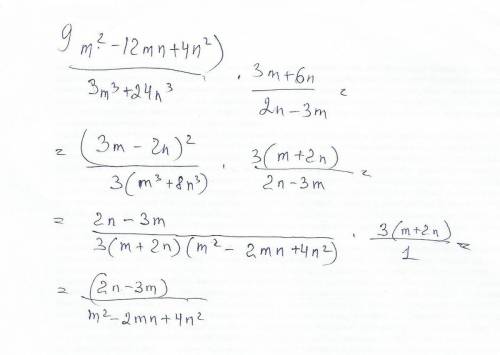 9m² - 12mn + 4n²) / 3m³ + 24n³ · 3m + 6n / 2n - 3m =
= (3m - 2n)² / 3(m³ + 8n³) · 3(m + 2n) / 2n - 3m =
= 2n - 3m / 3(m + 2n)(m² - 2mn + 4n²) · 3(m + 2n) / 1 =
= (2n - 3m) / m² - 2mn + 4n²